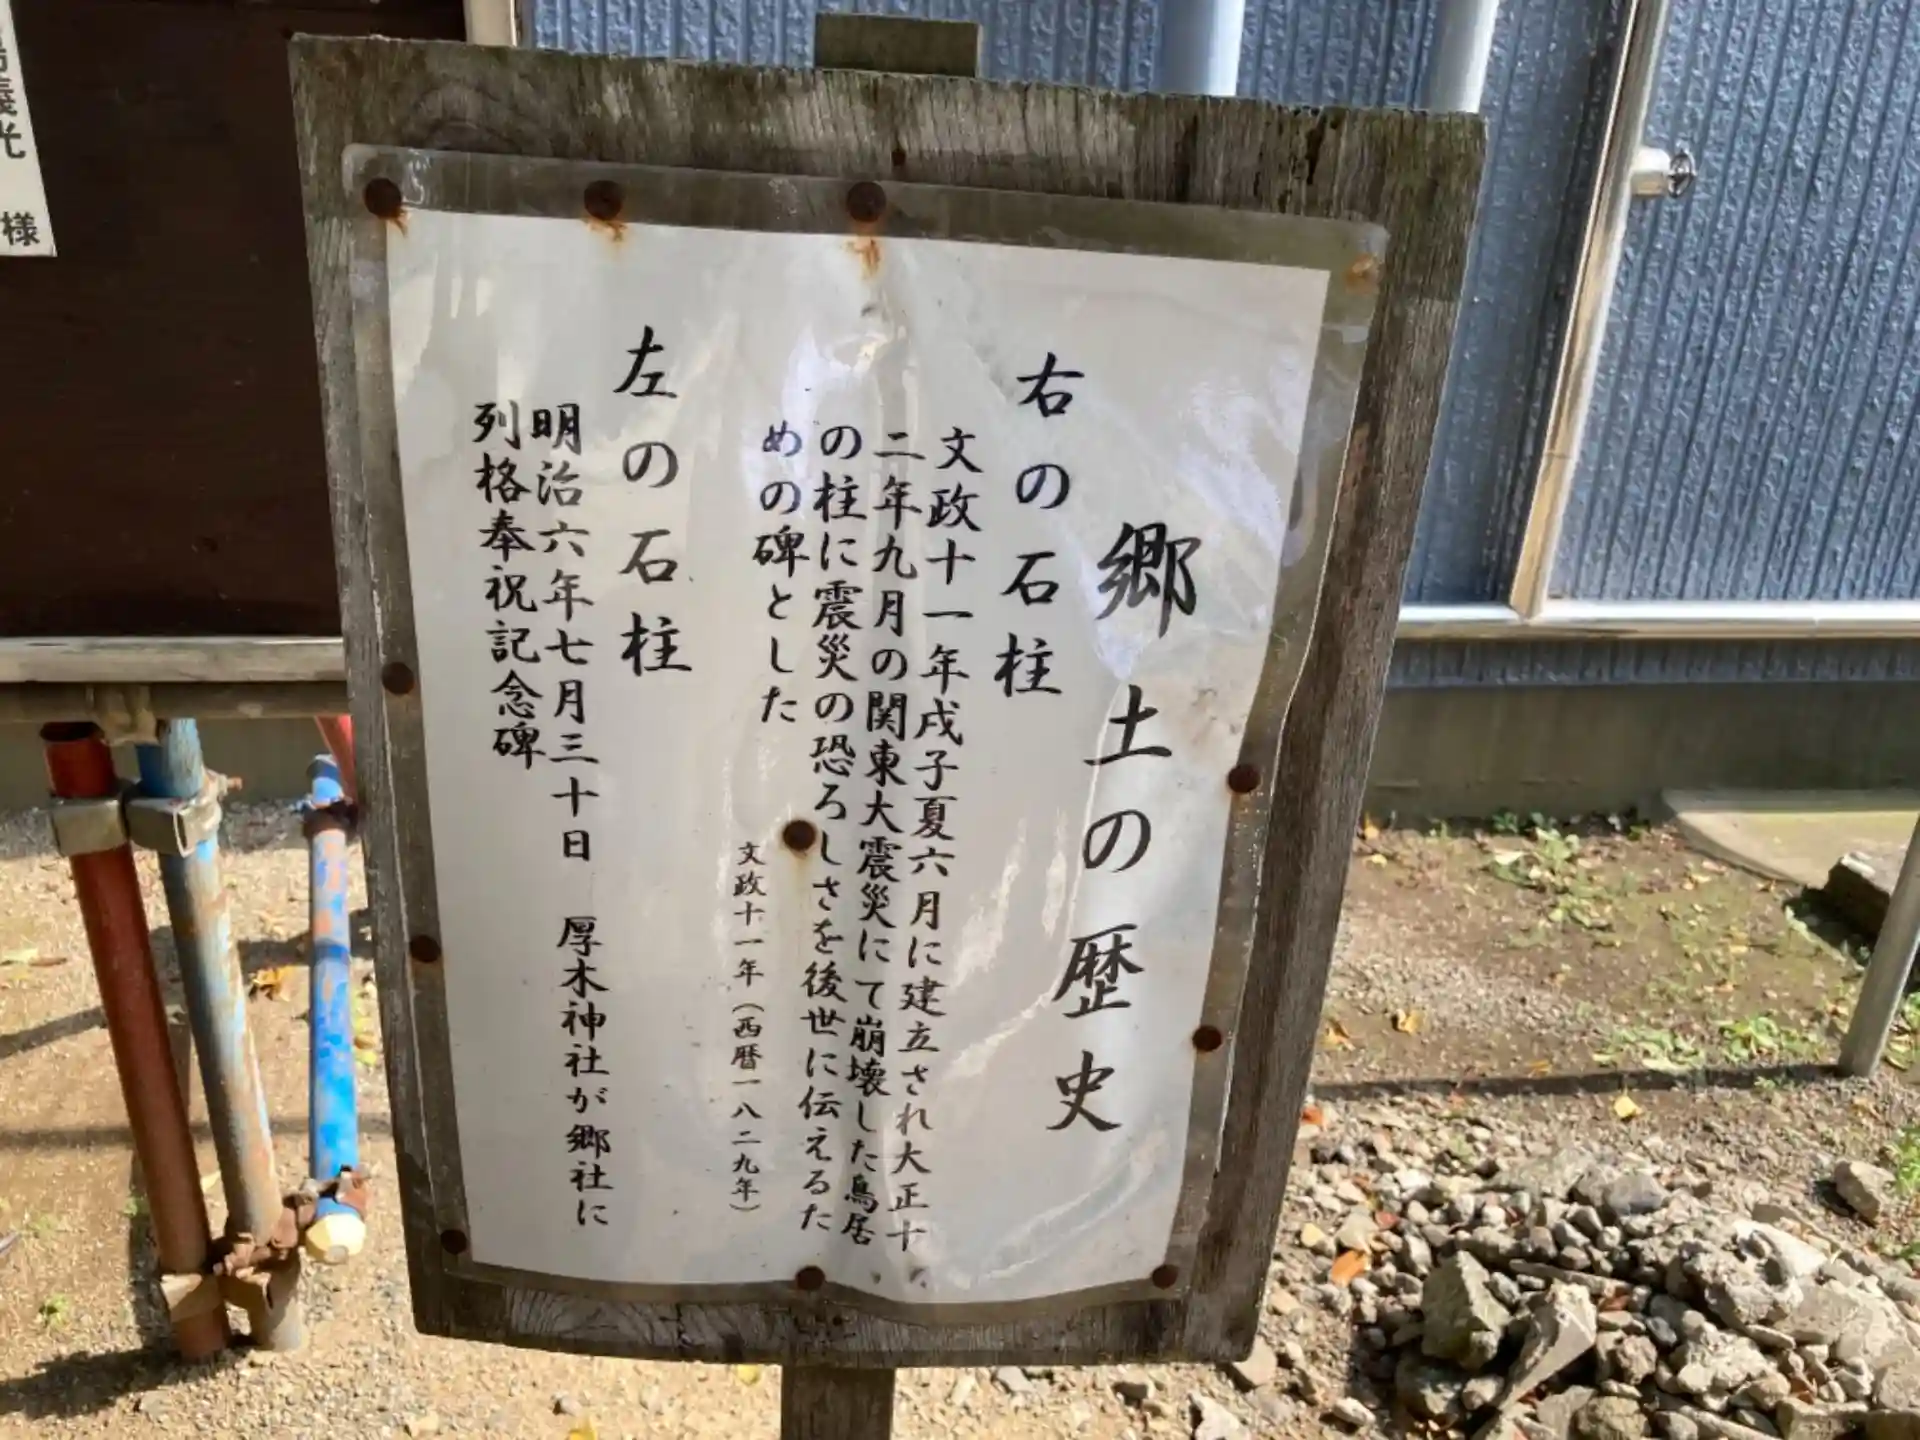 郷土の歴史
右の石柱
文政十一年戌子夏六月に建立され大正十
二年九月の関東大震災にて崩壊した鳥居
の柱に震災の恐ろしさを後世に伝えるた
めの碑とした
文政十一年（西暦一八二九年）
左の石柱
明治六年七月三十日 厚木神社が郷社に
列格奉祝記念碑
義光 様